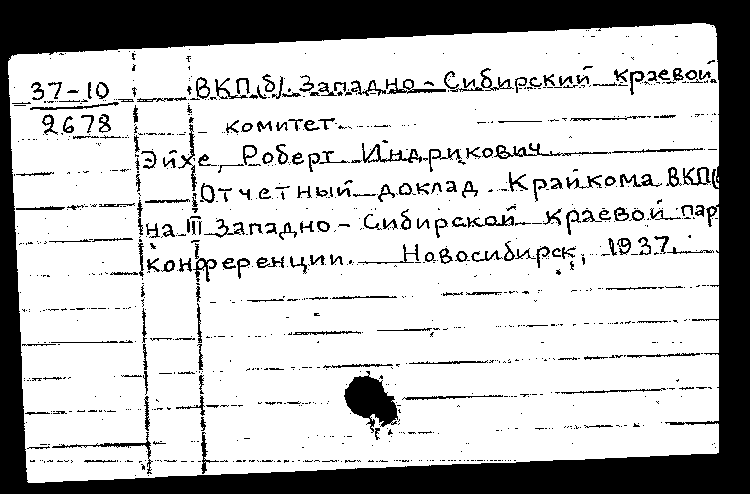 37-10
2678
ВКП(б). Западно-Сибирский краевой
комитет.
Эйхе, Роберт Индрикович.
Отчетный доклад Крайкома ВКП(
на III Западно-Сибирской краевой пар
конференции. Новосибирск, 1937.